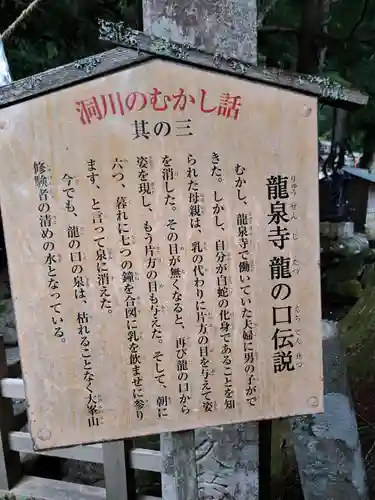 洞川のむかし話
其の三
龍泉寺 龍の口伝説
りゅう せん じ たつ くちでん せつ
むかし、龍泉寺で働いていた夫婦に男の子がで
きた。しかし、自分が白蛇の化身であることを知
られた母親は、乳の代わりに片方の目を与えて姿
を消した。その目が無くなると、再び龍の口から
姿を現し、もう片方の目も与えた。そして、朝に
六つ、暮れに七つの鐘を合図に乳を飲ませに参り
ます、と言って泉に消えた。
今でも、龍の口の泉は、枯れることなく大峯山
修験者の清めの水となっている。